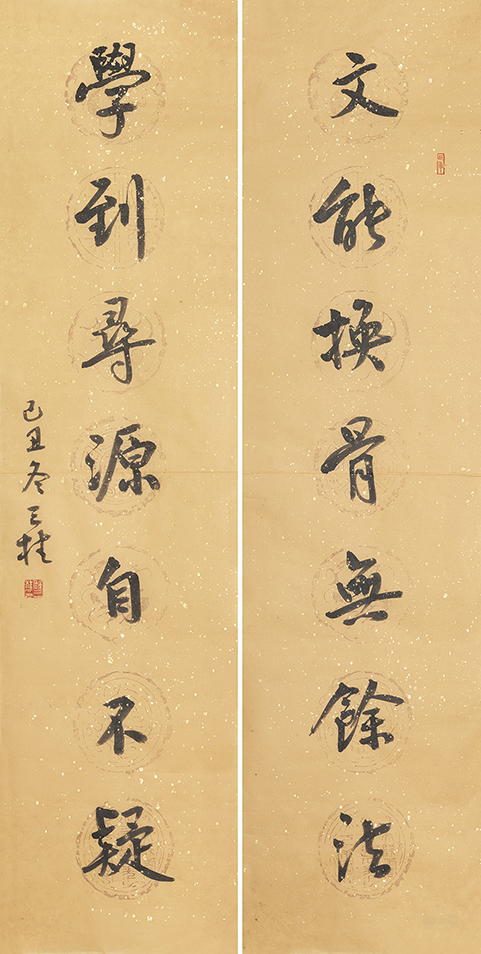 文能換骨無餘法
學到尋源自不疑
己丑冬三桂